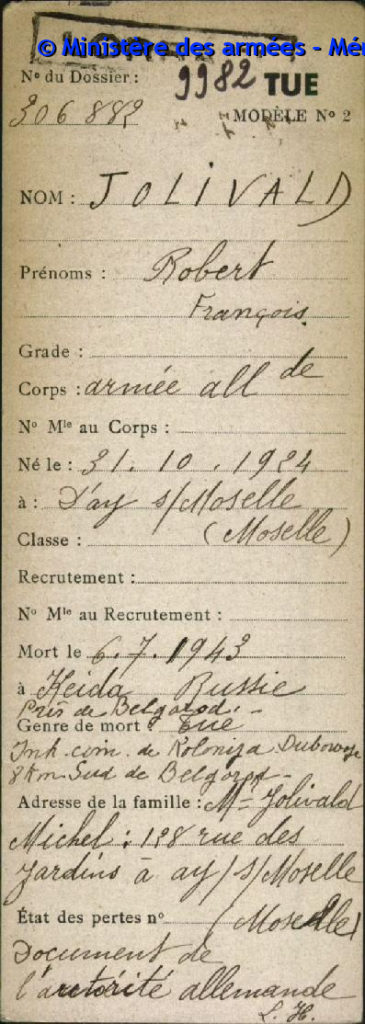 © Ministère des armées - Mé
N° du Dossier : 9982 TUE
306 883 MODÈLE N° 2
NOM : JOLIVALD
Prénoms : Robert
François
Grade :
Corps : armée all de
N° Mle au Corps :
Né le : 31. 10. 1924
à : D'ay s/Moselle
Classe : (Moselle)
Recrutement :
N° Mle au Recrutement :
Mort le 6.7.1943
à Heida Russie
Près de Belgorod. -
Genre de mort : Tué
Inh. com. de Kolonija Dubowoje
8 km Sud de Belgorod -
Adresse de la famille : Mr Jolivald
Michel : 128 rue des
Jardins à ay/s/Moselle
État des pertes n° (Moselle)
Document de
l'autorité allemande
L. H.